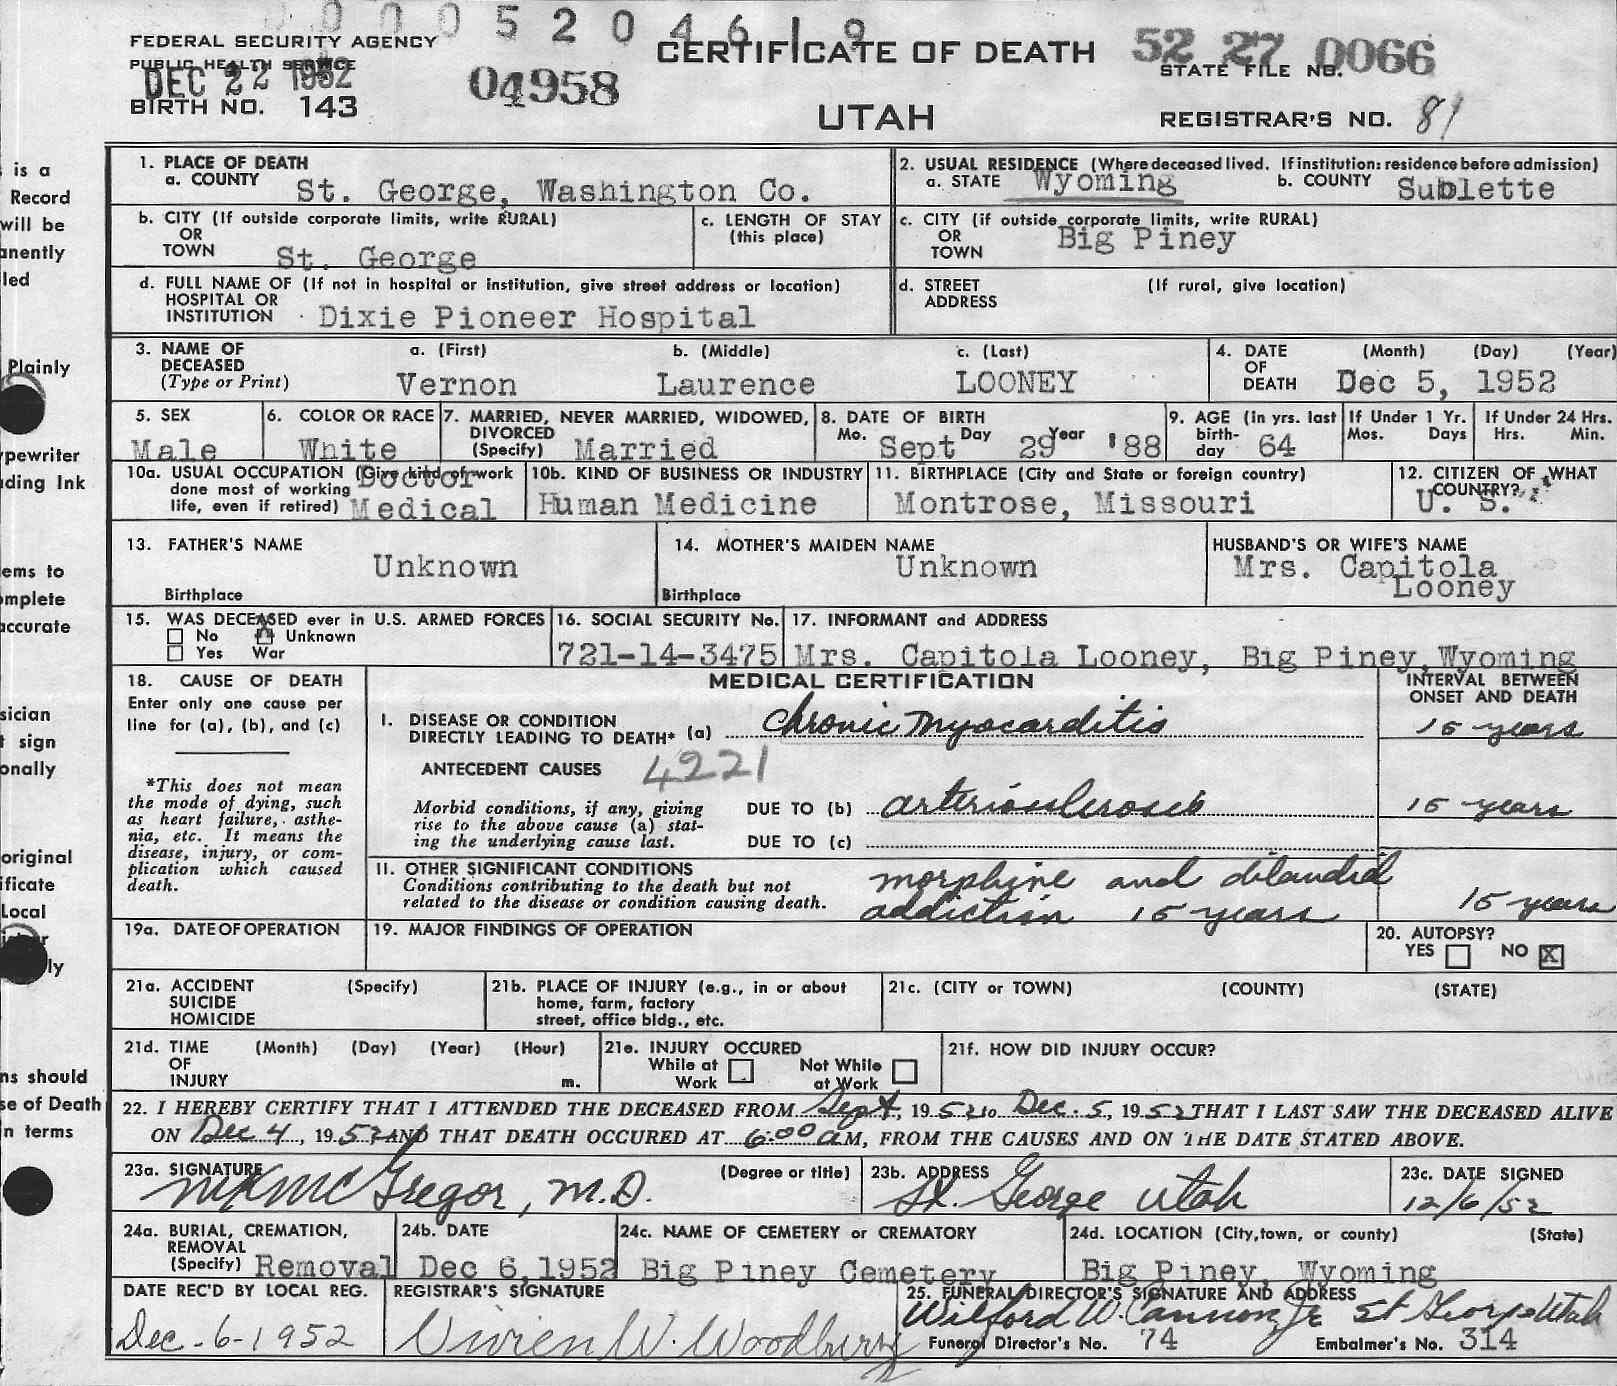 0 0 0 5 2 0 4 6 1 9
FEDERAL SECURITY AGENCY
PUBLIC HEALTH SERVICE
DEC 22 1952
BIRTH NO. 143
04958
CERTIFICATE OF DEATH
UTAH
52 27 0066
STATE FILE NO.
REGISTRAR'S NO. 81
is a
Record
will be
anently
led
Plainly
ypewriter
ding Ink
ems to
omplete
accurate
sician
t sign
onally
original
ificate
Local
ly
ns should
se of Death
n terms
1. PLACE OF DEATH
a. COUNTY St. George, Washington Co.
2. USUAL RESIDENCE (Where deceased lived. If institution: residence before admission)
a. STATE Wyoming b. COUNTY Sublette
b. CITY (If outside corporate limits, write RURAL)
OR
TOWN St. George
c. LENGTH OF STAY
(this place)
c. CITY (if outside corporate limits, write RURAL)
OR
TOWN Big Piney
d. FULL NAME OF (If not in hospital or institution, give street address or location)
HOSPITAL OR
INSTITUTION Dixie Pioneer Hospital
d. STREET (If rural, give location)
ADDRESS
3. NAME OF DECEASED a. (First) b. (Middle) c. (Last)
(Type or Print) Vernon Laurence LOONEY
4. DATE OF DEATH (Month) (Day) (Year)
Dec 5, 1952
5. SEX
Male
6. COLOR OR RACE
White
7. MARRIED, NEVER MARRIED, WIDOWED,
DIVORCED
(Specify) Married
8. DATE OF BIRTH
Mo. Sept Day 29 Year '88
9. AGE (in yrs. last
birth-
day 64
If Under 1 Yr.
Mos. Days
If Under 24 Hrs.
Hrs. Min.
10a. USUAL OCCUPATION (Give kind of work
done most of working
life, even if retired) Doctor
Medical
10b. KIND OF BUSINESS OR INDUSTRY
Human Medicine
11. BIRTHPLACE (City and State or foreign country)
Montrose, Missouri
12. CITIZEN OF WHAT
COUNTRY?
U. S.
13. FATHER'S NAME
Unknown
Birthplace
14. MOTHER'S MAIDEN NAME
Unknown
Birthplace
HUSBAND'S OR WIFE'S NAME
Mrs. Capitola
Looney
15. WAS DECEASED ever in U.S. ARMED FORCES
No X Unknown
Yes War
16. SOCIAL SECURITY No.
721-14-3475
17. INFORMANT and ADDRESS
Mrs. Capitola Looney, Big Piney, Wyoming
18. CAUSE OF DEATH
Enter only one cause per
line for (a), (b), and (c)
*This does not mean
the mode of dying, such
as heart failure, asthe-
nia, etc. It means the
disease, injury, or com-
plication which caused
death.
MEDICAL CERTIFICATION
INTERVAL BETWEEN
ONSET AND DEATH
I. DISEASE OR CONDITION
DIRECTLY LEADING TO DEATH* (a) Chronic myocarditis 15 years
ANTECEDENT CAUSES 4221
Morbid conditions, if any, giving
rise to the above cause (a) stat-
ing the underlying cause last.
DUE TO (b) arteriosclerosis 15 years
DUE TO (c)
II. OTHER SIGNIFICANT CONDITIONS
Conditions contributing to the death but not
related to the disease or condition causing death.
morphine and dilaudid
addiction 15 years 15 years
19a. DATE OF OPERATION
19. MAJOR FINDINGS OF OPERATION
20. AUTOPSY?
YES NO X
21a. ACCIDENT (Specify)
SUICIDE
HOMICIDE
21b. PLACE OF INJURY (e.g., in or about
home, farm, factory
street, office bldg., etc.
21c. (CITY or TOWN) (COUNTY) (STATE)
21d. TIME (Month) (Day) (Year) (Hour)
OF
INJURY m.
21e. INJURY OCCURED
While at Not While
Work at Work
21f. HOW DID INJURY OCCUR?
22. I HEREBY CERTIFY THAT I ATTENDED THE DECEASED FROM Sept, 1952 to Dec. 5, 1952 THAT I LAST SAW THE DECEASED ALIVE
ON Dec 4, 1952 AND THAT DEATH OCCURED AT 6:00 AM, FROM THE CAUSES AND ON THE DATE STATED ABOVE.
23a. SIGNATURE (Degree or title)
McGregor, M.D.
23b. ADDRESS
St. George Utah
23c. DATE SIGNED
12/6/52
24a. BURIAL, CREMATION,
REMOVAL
(Specify) Removal
24b. DATE
Dec 6, 1952
24c. NAME OF CEMETERY or CREMATORY
Big Piney Cemetery
24d. LOCATION (City, town, or county) (State)
Big Piney, Wyoming
DATE REC'D BY LOCAL REG.
Dec. 6-1952
REGISTRAR'S SIGNATURE
Vivien W. Woodbury
25. FUNERAL DIRECTOR'S SIGNATURE AND ADDRESS
Wilford W. Cannon, Jr St George Utah
Funeral Director's No. 74 Embalmer's No. 314